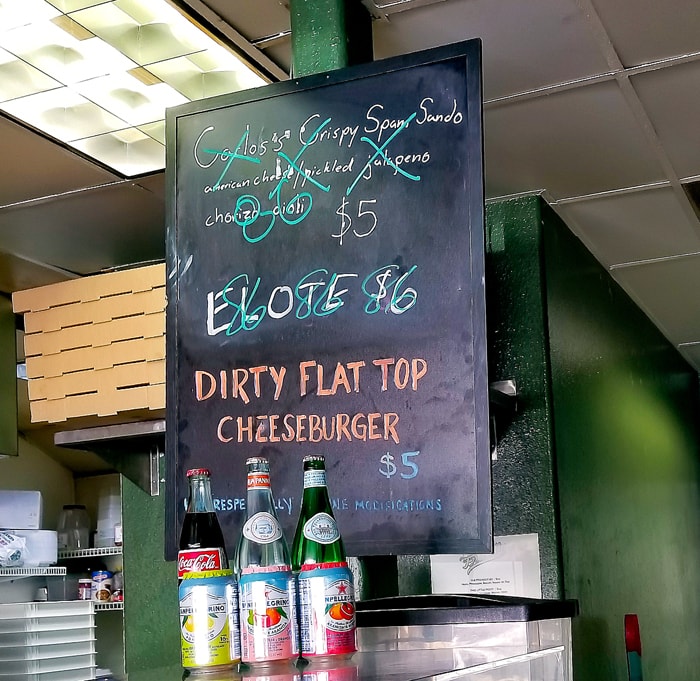 Carlos's Crispy Spam Sando
american cheese/pickled jalapeno
chorizo aioli $5
ELOTE $6
86 86 86
DIRTY FLAT TOP
CHEESEBURGER
$5
RESPECTFULLY DECLINE MODIFICATIONS
Coca-Cola
SANPELLEGRINO
SANPELLEGRINO
SANPELLEGRINO